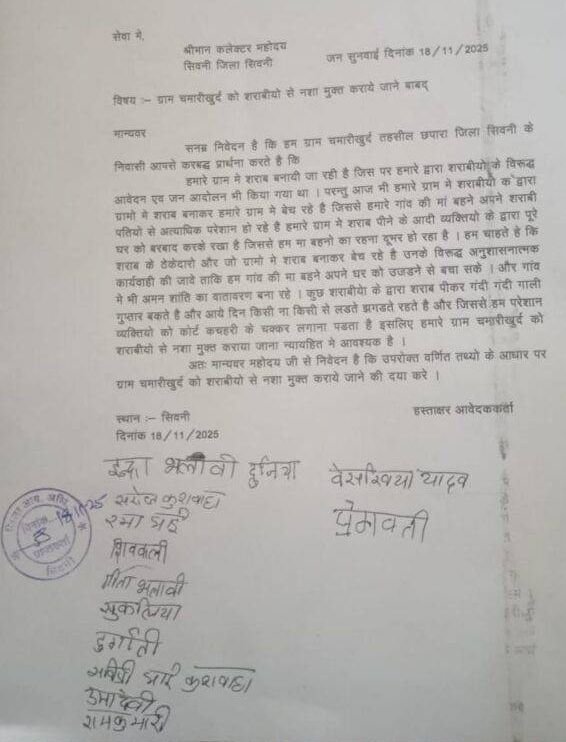 सेवा में,
श्रीमान कलेक्टर महोदय
सिवनी जिला सिवनी
जन सुनवाई दिनांक 18/11/2025
विषय :– ग्राम चमारीखुर्द को शराबीयो से नशा मुक्त कराये जाने बाबद्
मान्यवर
सनम्र निवेदन है कि हम ग्राम चमारीखुर्द तहसील छपारा जिला सिवनी के
निवासी आपसे करबद्ध प्रार्थना करते है कि
हमारे ग्राम मे शराब बनायी जा रही है जिस पर हमारे द्वारा शराबीयो के विरूद्ध
आवेदन एव जन आदोलन भी किया गया था । परन्तु आज भी हमारे ग्राम मे शराबीयो के द्वारा
ग्रामो मे शराब बनाकर हमारे ग्राम मे बेच रहे है जिससे हमारे गांव की मां बहने अपने शराबी
पतियो से अत्याधिक परेशान हो रहे है हमारे ग्राम मे शराब पीने के आदी व्यक्तियो के द्वारा पूरे
घर को बरबाद करके रखा है जिससे हम मा बहनो का रहना दूभर हो रहा है । हम चाहते है कि
शराब के ठेकेदारो और जो ग्रामो मे शराब बनाकर बेच रहे है उनके विरूद्ध अनुशासनात्मक
कार्यवाही की जावे ताकि हम गांव की मा बहने अपने घर को उजडने से बचा सके । और गांव
मे भी अमन शांति का वातावरण बना रहे । कुछ शराबीयो के द्वारा शराब पीकर गंदी गंदी गाली
गुप्तार बकते है और आये दिन किसी ना किसी से लडते झगडते रहते है और जिससे हम परेशान
व्यक्तियो को कोर्ट कचहरी के चक्कर लगाना पडता है इसलिए हमारे ग्राम चमारीखुर्द को
शराबीयो से नशा मुक्त कराया जाना न्यायहित मे आवश्यक है ।
अतः मान्यवर महोदय जी से निवेदन है कि उपरोक्त वर्णित तथ्यो के आधार पर
ग्राम चमारीखुर्द को शराबीयो से नशा मुक्त कराये जाने की दया करे ।
स्थान :– सिवनी
हस्ताक्षर आवेदककर्ता
दिनांक 18/11/2025
भलावी
वेसखिया यादव
सरोज कुशवाहा
रमा बाई
प्रेमवती
शिववती
गीता भलावी
दिनांक
सिवनी
कुशवाहा
उमादेवी
रामकुमारी